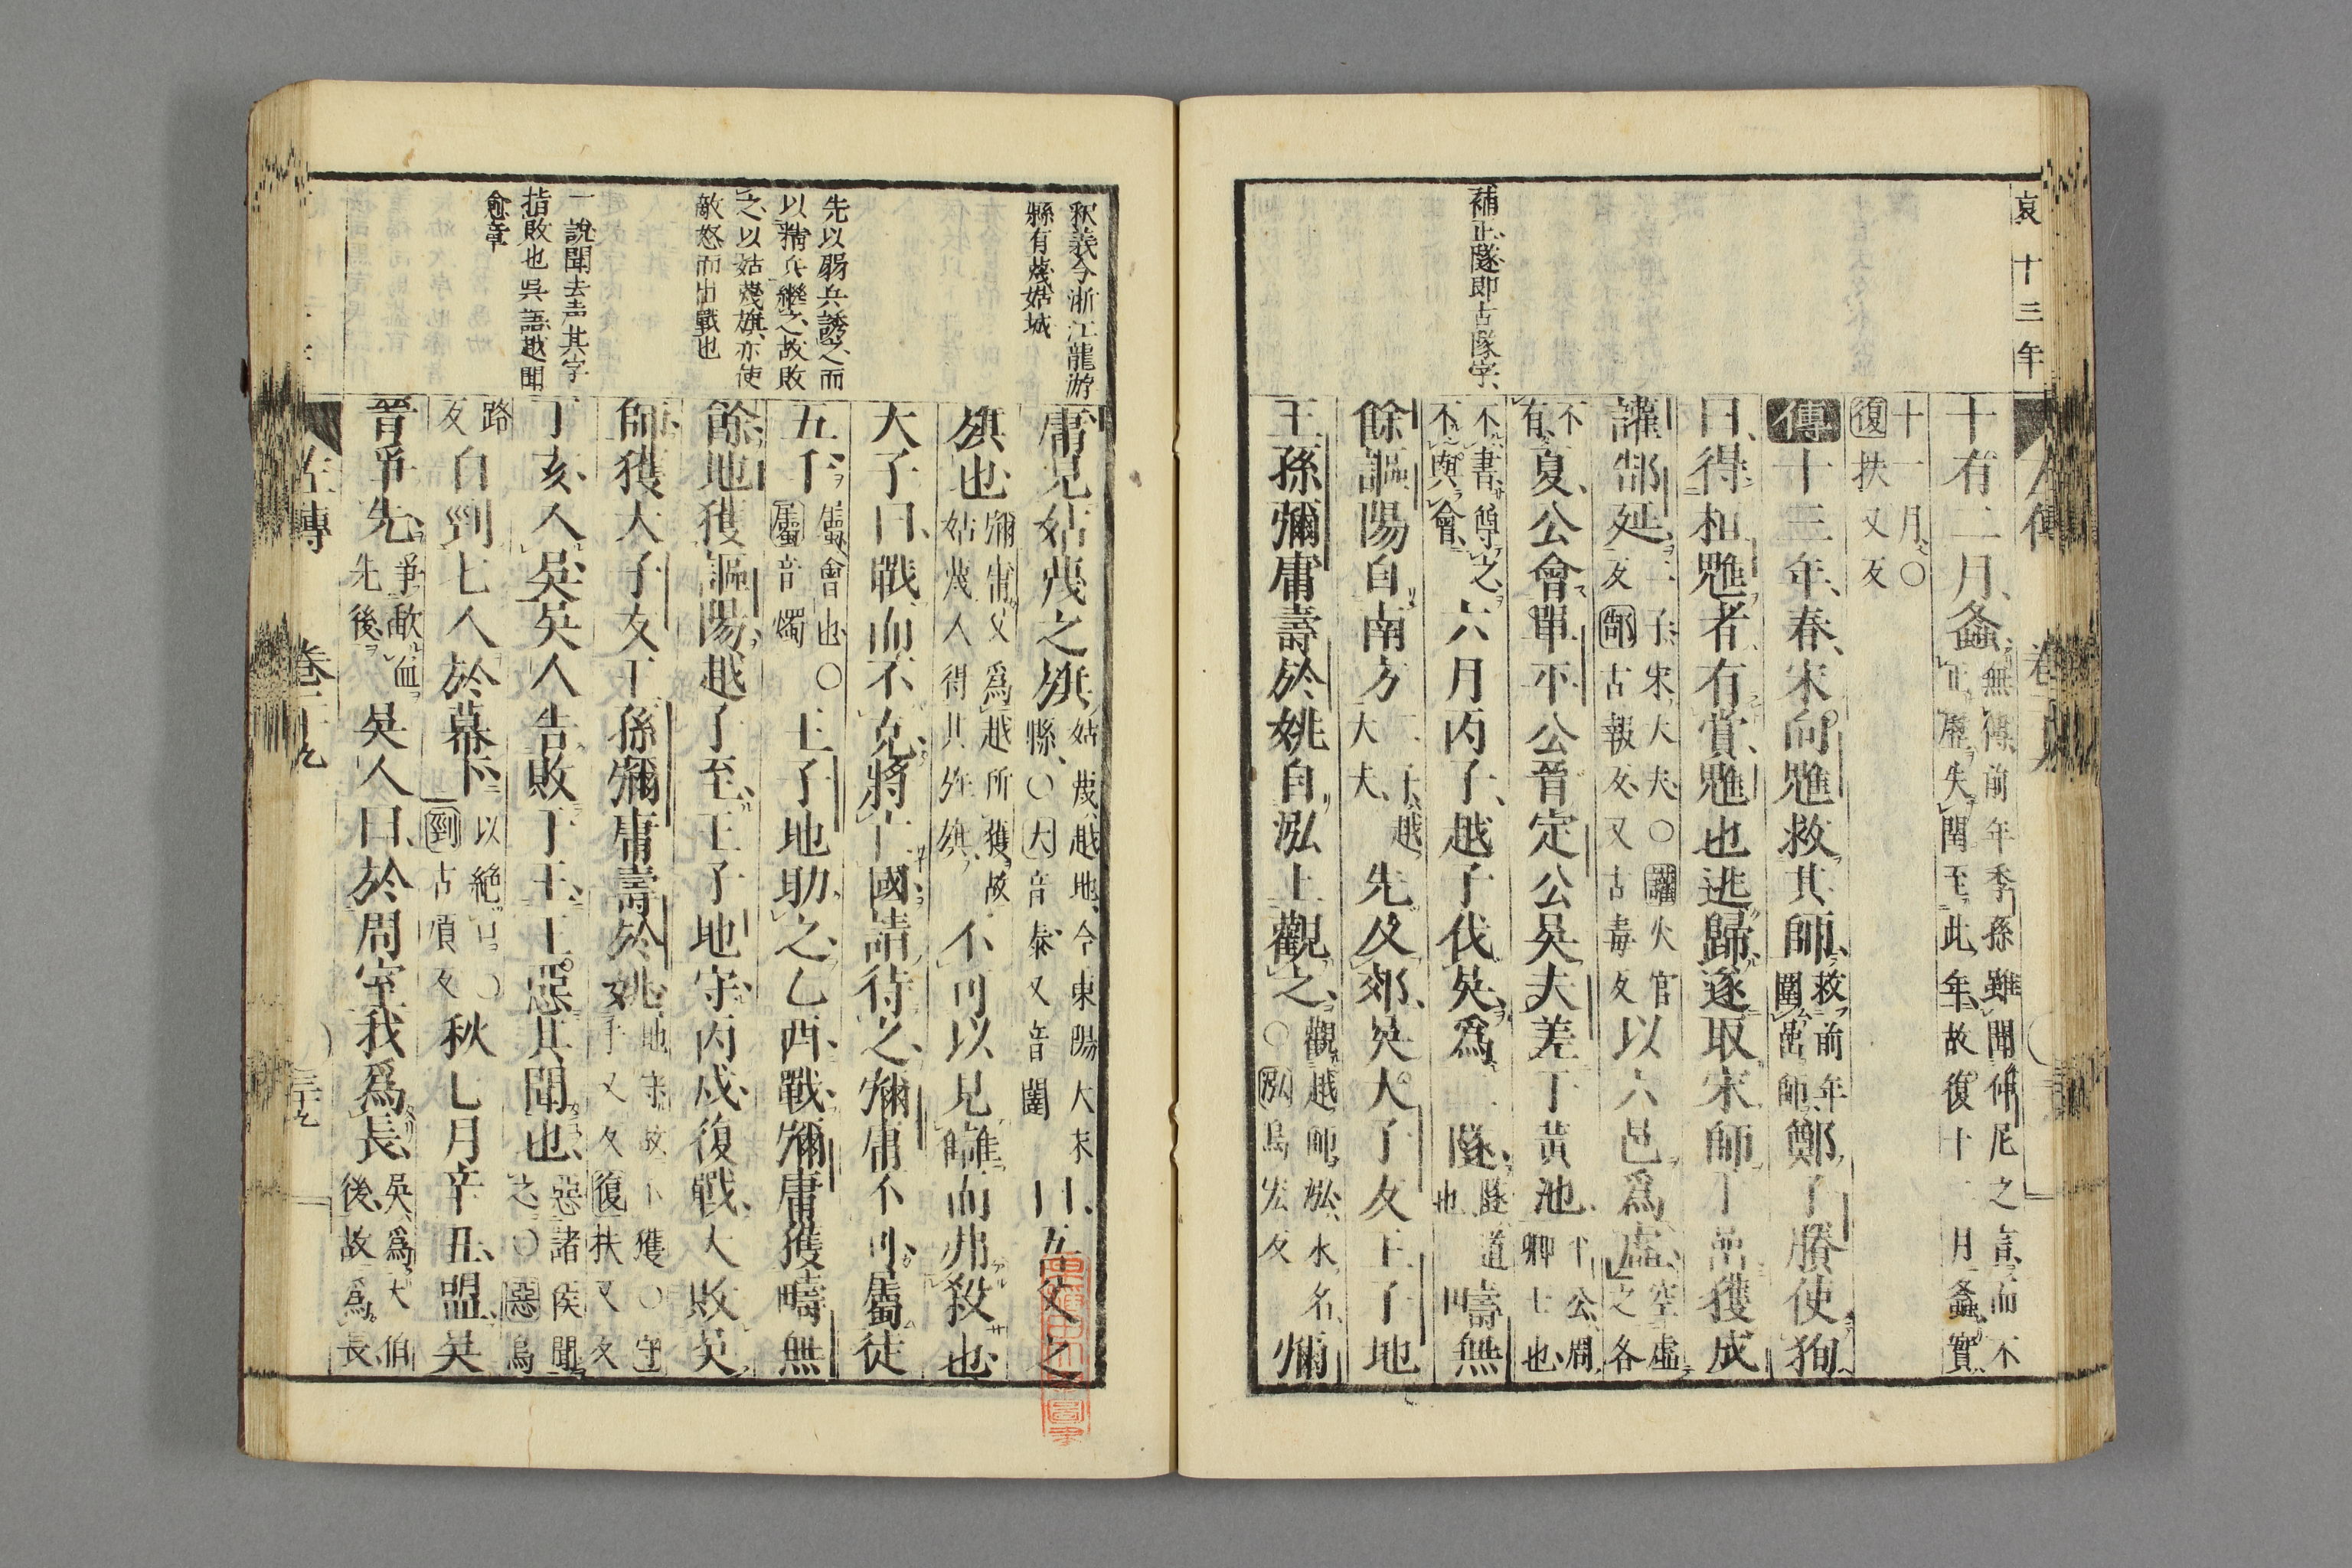 哀十三年
十有二月螽無傳前年季孫雖聞仲尼之言而不
正厤失閏至此年故復十二月螽實
十一月〇
復扶又反
傳十三年春宋向魋救其師救前年
圍嵒師鄭子賸使狗
曰得桓魋者有賞魋也逃歸遂取宋師于嵒獲成
讙郜延二子宋大夫〇讙火官
反郜古報反又古毒反以六邑爲虛空虛
之各
不
有夏公會單平公晉定公吳夫差于黃池平公周
卿士也
不書尊之
不與會六月丙子越子伐吳爲二隧隧道
也疇無
餘謳陽自南方二子越
大夫先及郊吳大子友王子地
王孫彌庸壽於姚自泓上觀之觀越師泓水名
〇泓烏宏反彌
補正隧即古隊字
庸見姑蔑之旗姑蔑越地今東陽大末
縣〇大音泰又音闥曰吾父之
旗也彌庸父爲越所獲故
姑蔑人得其旌旗不可以見讎而弗殺也
大子曰戰而不克將亡國請待之彌庸不可屬徒
五千屬會也〇
屬音燭王子地助之乙酉戰彌庸獲疇無
餘地獲謳陽越子至王子地守丙戌復戰大敗吳
師獲大子友王孫彌庸壽於姚地守故不獲〇守
手又反復扶又反
丁亥入吳吳人告敗于王王惡其聞也惡諸侯聞
之〇惡烏
路
反自剄七人於幕下以絶口〇
剄古頂反秋七月辛丑盟吳
晉爭先爭歃血
先後吳人曰於周室我爲長吳爲大伯
後故爲長
釈義今浙江龍游
縣有蔑姑城
先以弱兵誘之而
以精兵繼之故敗
之以姑蔑旗亦使
敵怒而出戰也
一說聞去声其字
指敗也吳語越聞
愈章
左傳　卷二十九　三十九